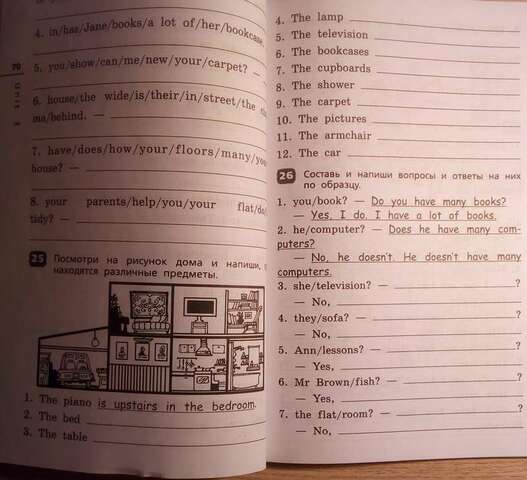 4. in/has/Jane/books/a lot of/her/bookcase.
5. you/show/can/me/new/your/carpet? —
6. house/the wide/is/their/in/street/the
me/behind. —
7. have/does/how/your/floors/many/you
house? —
8. your parents/help/you/your flat/do
tidy? —
70
25 Посмотри на рисунок дома и напиши,
находятся различные предметы.
1. The piano is upstairs in the bedroom.
2. The bed
3. The table
4. The lamp
5. The television
6. The bookcases
7. The cupboards
8. The shower
9. The carpet
10. The pictures
11. The armchair
12. The car
26 Составь и напиши вопросы и ответы на них
по образцу.
1. you/book? — Do you have many books?
— Yes, I do. I have a lot of books.
2. he/computer? — Does he have many com-
puters?
— No, he doesn't. He doesn't have many
computers.
3. she/television? — ?
— No,
4. they/sofa? — ?
— No,
5. Ann/lessons? — ?
— Yes,
6. Mr Brown/fish? — ?
— Yes,
7. the flat/room? — ?
— No,